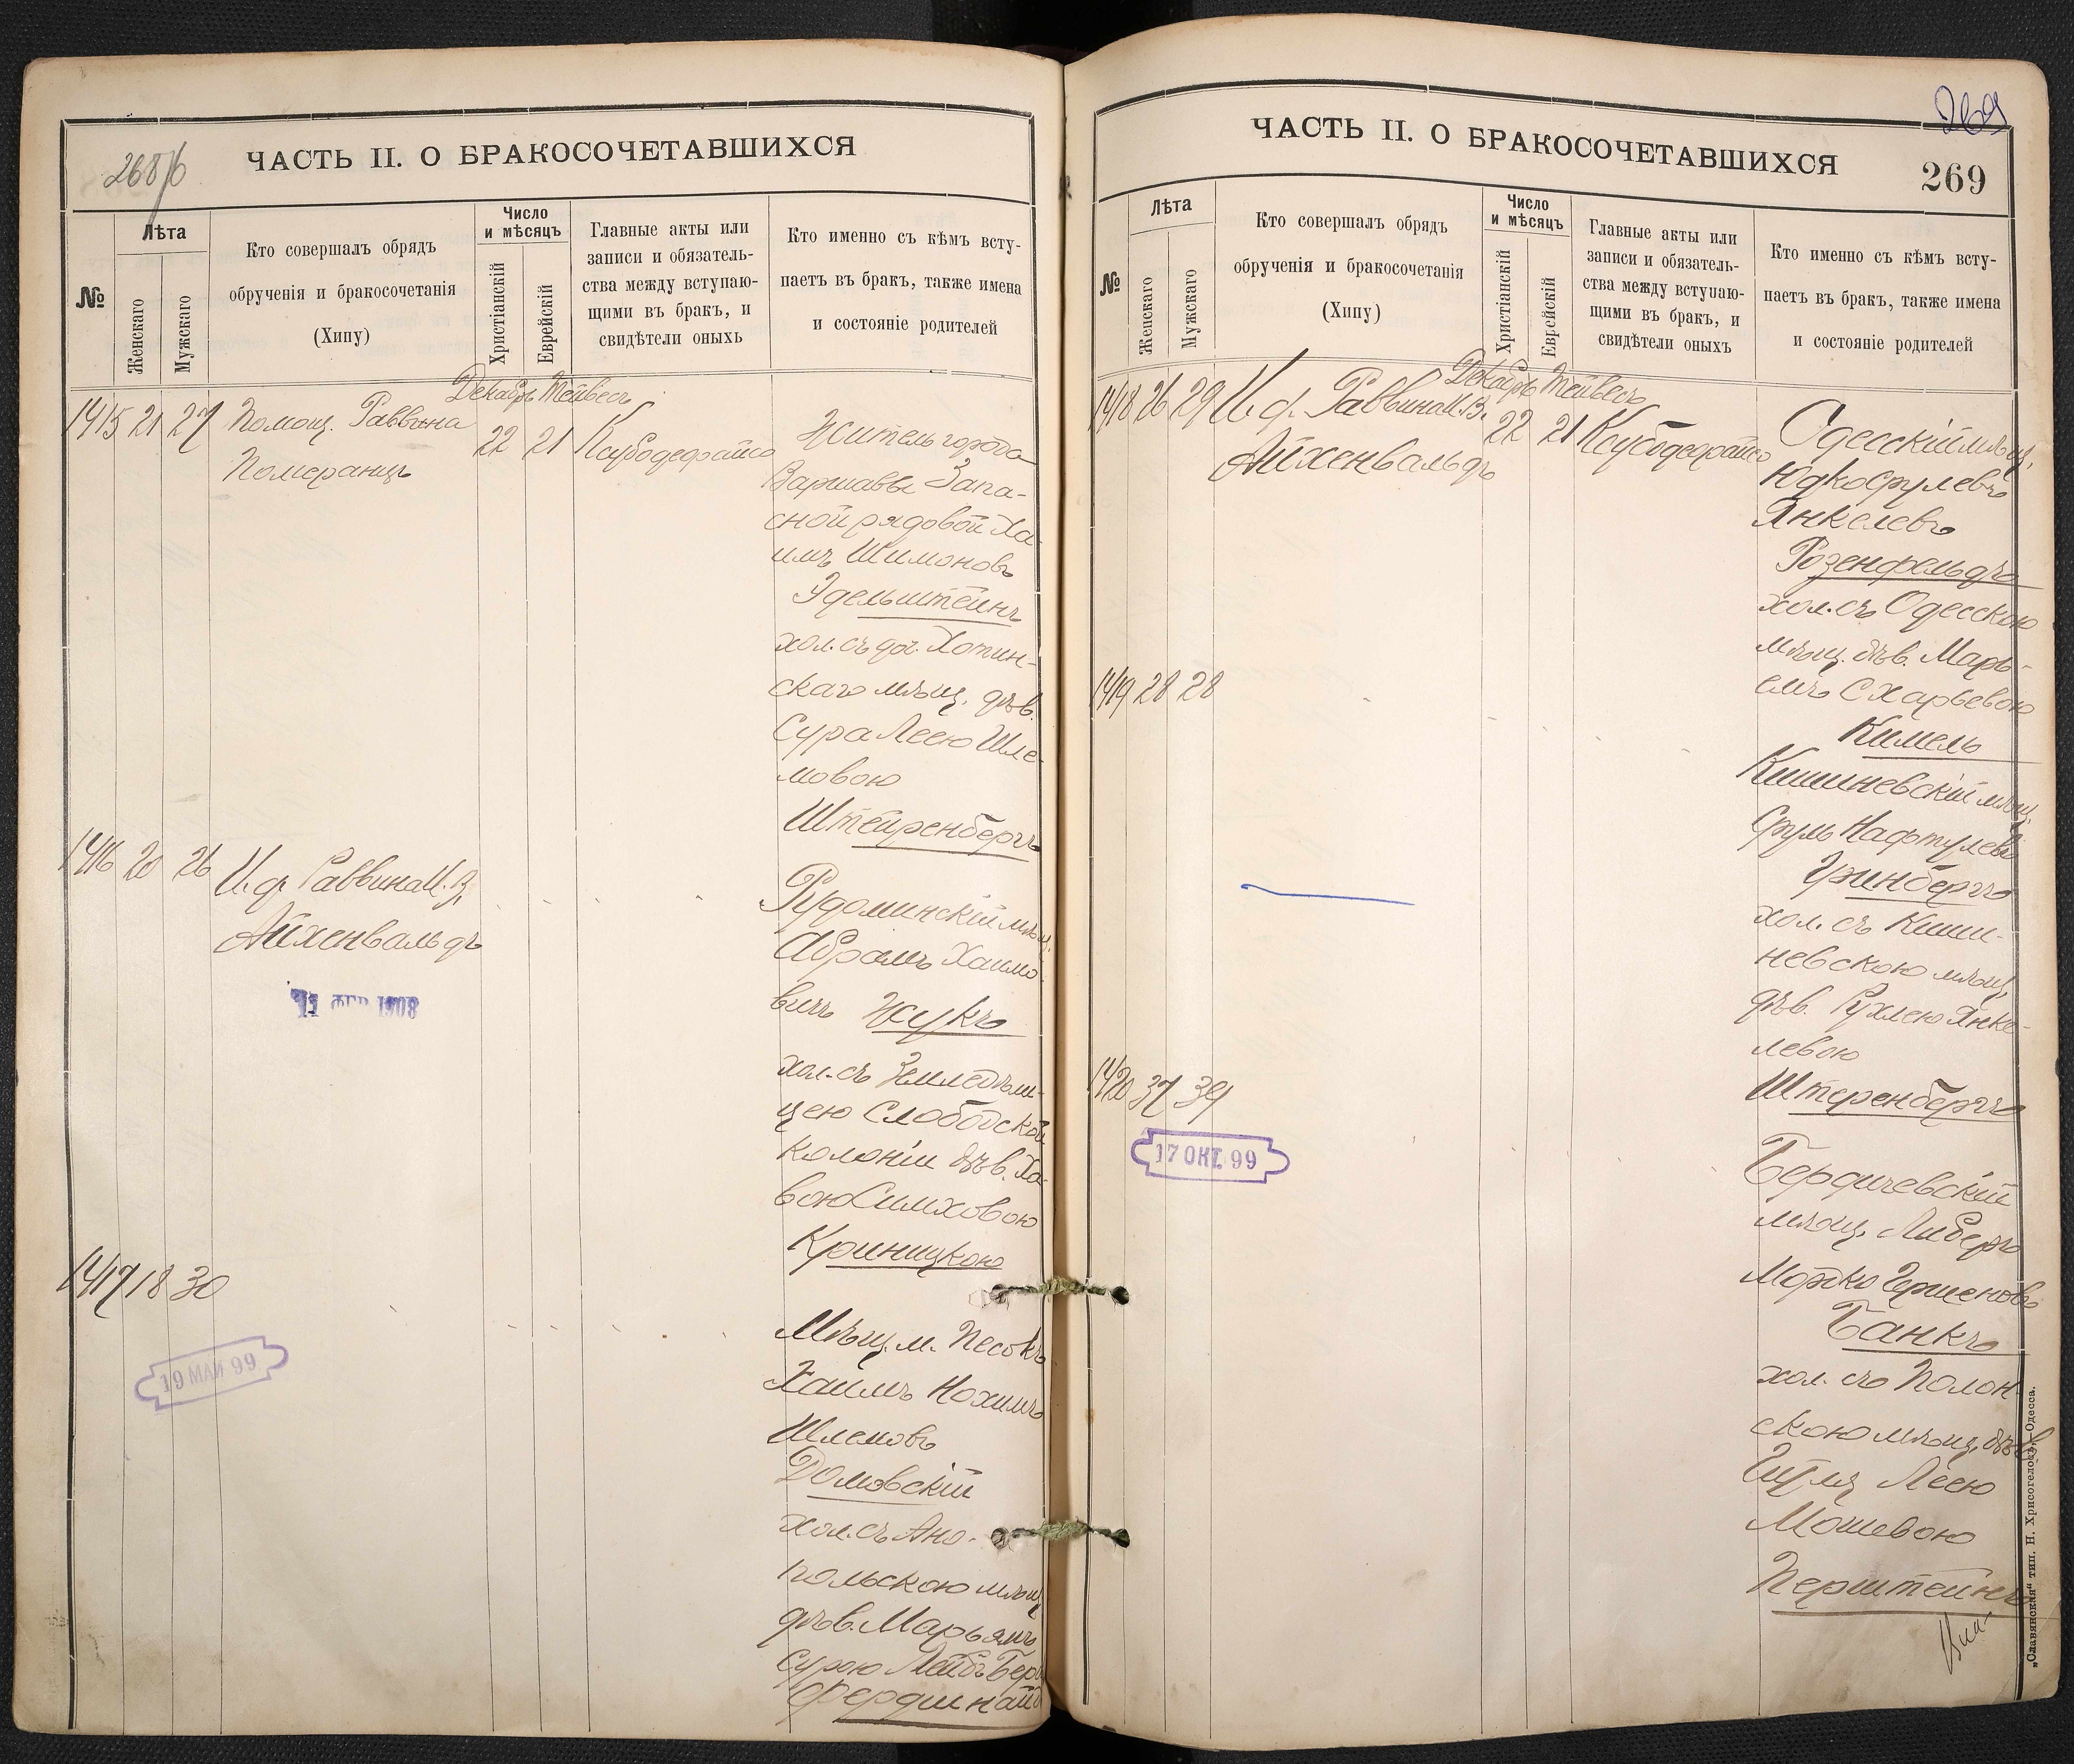 268/б
ЧАСТЬ II. О БРАКОСОЧЕТАВШИХСЯ
№
Лѣта
Женскаго
Мужскаго
Кто совершалъ обрядъ
обрученія и бракосочетанія
(Хипу)
Число
и мѣсяцъ
Христіанскій
Еврейскій
Главные акты или
записи и обязатель-
ства между вступаю-
щими въ бракъ, и
свидѣтели оныхъ
Кто именно съ кѣмъ всту-
паетъ въ бракъ, также имена
и состояніе родителей
Декабрь Тейвесъ
1415 21 27 Помощ. Раввина
Померанцъ
22 21
Житель города
Варшавы Запа-
сной рядовой Ха-
имъ Шимоновъ
Эдельштейнъ
хол. съ дог. Хотин-
скаго мѣщ. дѣв.
Сура Леею Шле-
мовою
Штейренбергъ
1416 20 26 И. д. Раввина И. З.
Айхенвальдъ
1908
Рудоминскій мѣщ.
Абрамъ Хаимо-
вичъ Жукъ
хол. съ Земледѣли-
цею Слободской
колоніи дѣв. Ха-
вою Симховою
Криницкою
1417 18 30
19 МАЙ 99
Мѣщ. м. Песокъ
Хаимъ Нохимъ
Шлемовъ
Домовскій
хол. съ Ано-
польскою мѣщ.
дѣв. Марьямъ
Сурою Лейбъ Бер
Фердинанд
269
ЧАСТЬ II. О БРАКОСОЧЕТАВШИХСЯ
269
№
Лѣта
Женскаго
Мужскаго
Кто совершалъ обрядъ
обрученія и бракосочетанія
(Хипу)
Число
и мѣсяцъ
Христіанскій
Еврейскій
Главные акты или
записи и обязатель-
ства между вступаю-
щими въ бракъ, и
свидѣтели оныхъ
Кто именно съ кѣмъ всту-
паетъ въ бракъ, также имена
и состояніе родителей
Декабрь Тейвесъ
1418 26 29 И. д. Раввина И. З.
Айхенвальдъ
22 21
Одесскій мѣщ.
Юдко Срулевъ
Янкелевъ
Розенфельдъ
хол. съ Одесскою
мѣщ. дѣв. Марь-
емъ Схарьевою
Кимель
1419 28 28
Кишиневскій мѣщ.
Сруль Нафтулевъ
Гринбергъ
хол. съ Киши-
невскою мѣщ.
дѣв. Рухлею Янке-
левою
Штеренбергъ
1420 37 39
17 ОКТ. 99
Бердичевскій
мѣщ. Либеръ
Мордко Гершеновъ
Банкъ
хол. съ Полон-
скою мѣщ. дѣв.
Гитля Леею
Мошевою
Перштейнъ
„Славянская“ тип. Н. Хрисогелосъ, Одесса.